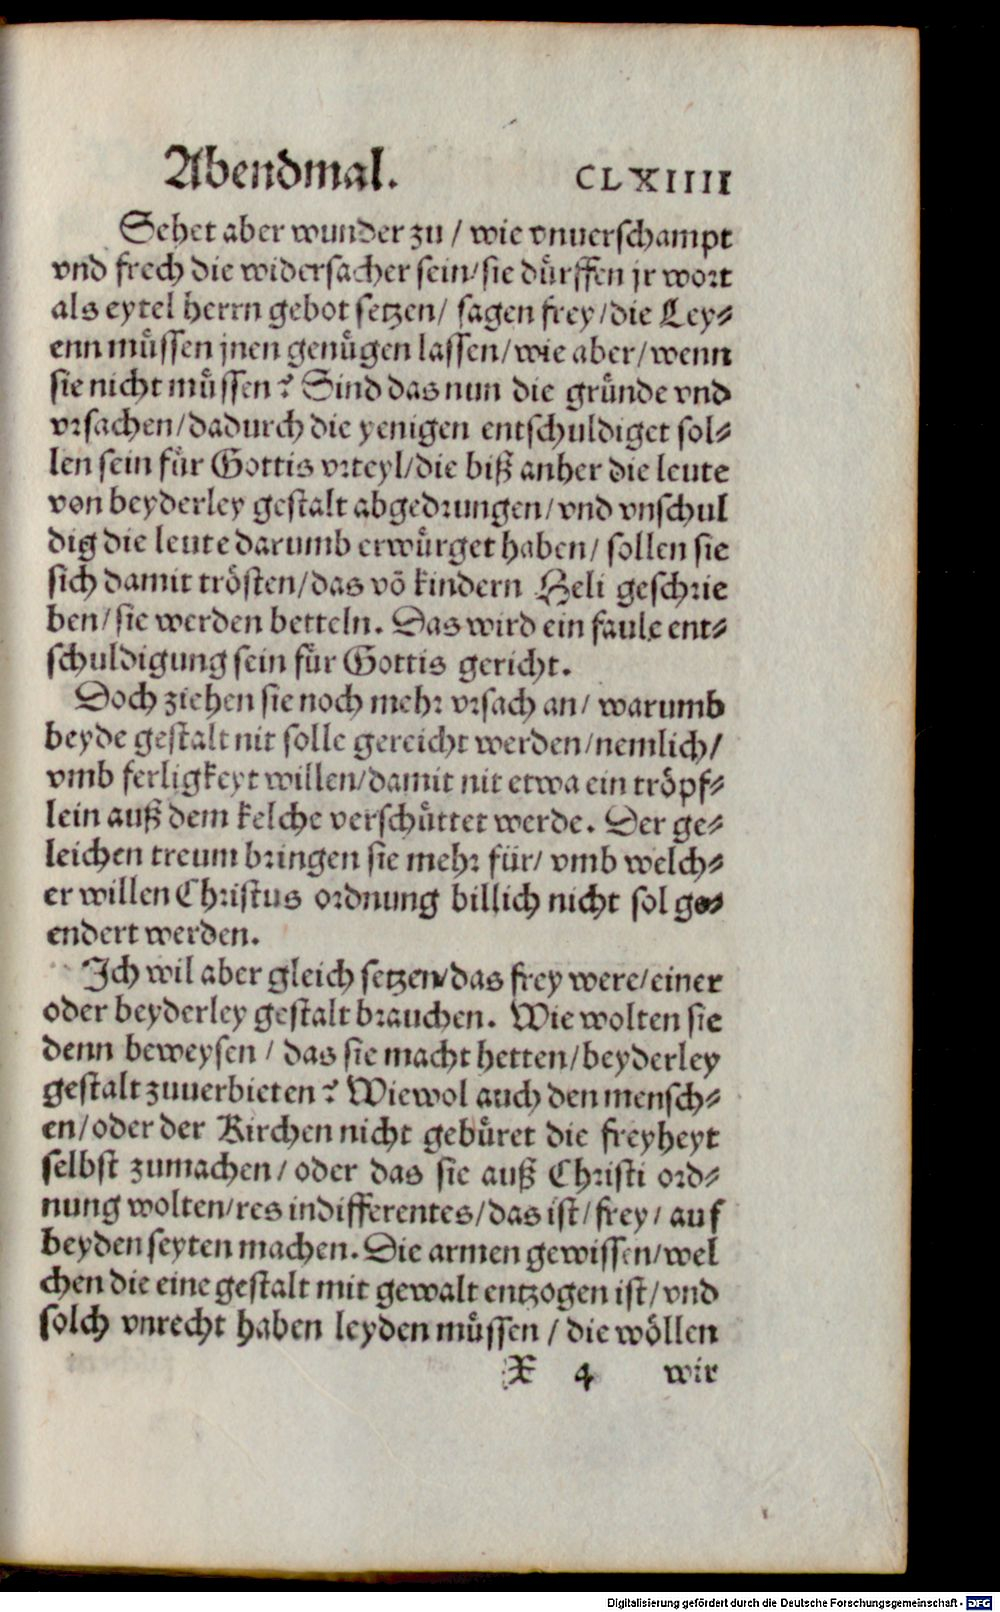 Abendmal. CLXIIII
Sehet aber wunder zu / wie vnuerschampt
vnd frech die widersacher sein/sie dürffen jr wort
als eytel herrn gebot setzen/ sagen frey/die Ley⸗
enn müssen jnen genügen lassen/wie aber/wenn
sie nicht müssen? Sind das nun die gründe vnd
vrsachen/dadurch die yenigen entschuldiget sol⸗
len sein für Gottis vrteyl/die biß anher die leute
von beyderley gestalt abgedrungen/vnd vnschul
dig die leute darumb erwürget haben/ sollen sie
sich damit trösten/das võ kindern Heli geschrie
ben/sie werden betteln. Das wird ein faule ent⸗
schuldigung sein für Gottis gericht.
Doch ziehen sie noch mehr vrsach an/ warumb
beyde gestalt nit solle gereicht werden/nemlich/
vmb ferligkeyt willen/damit nit etwa ein tröpf⸗
lein auß dem kelche verschüttet werde. Der ge⸗
leichen treum bringen sie mehr für/ vmb welch⸗
er willen Christus ordnung billich nicht sol ge⸗
endert werden.
Ich wil aber gleich setzen/das frey were/einer
oder beyderley gestalt brauchen. Wie wolten sie
denn beweysen / das sie macht hetten/beyderley
gestalt zuuerbieten? Wiewol auch den mensch⸗
en/oder der Kirchen nicht gebüret die freyheyt
selbst zumachen/ oder das sie auß Christi ord⸗
nung wolten/res indifferentes/das ist/frey/ auf
beyden seyten machen. Die armen gewissen/wel
chen die eine gestalt mit gewalt entzogen ist/vnd
solch vnrecht haben leyden müssen / die wöllen
X 4 wir
Digitalisierung gefördert durch die Deutsche Forschungsgemeinschaft - DFG